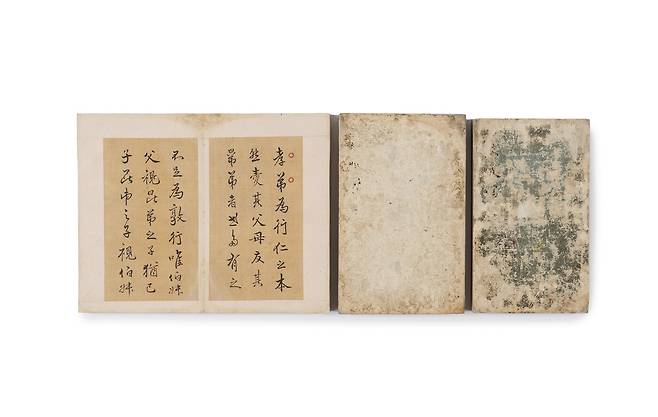 孝弟為行仁之本
然愛其父母友其
弟者世多有之
不足為敦行唯伯叔
父視昆弟之子猶己
子昆弟之子視伯叔